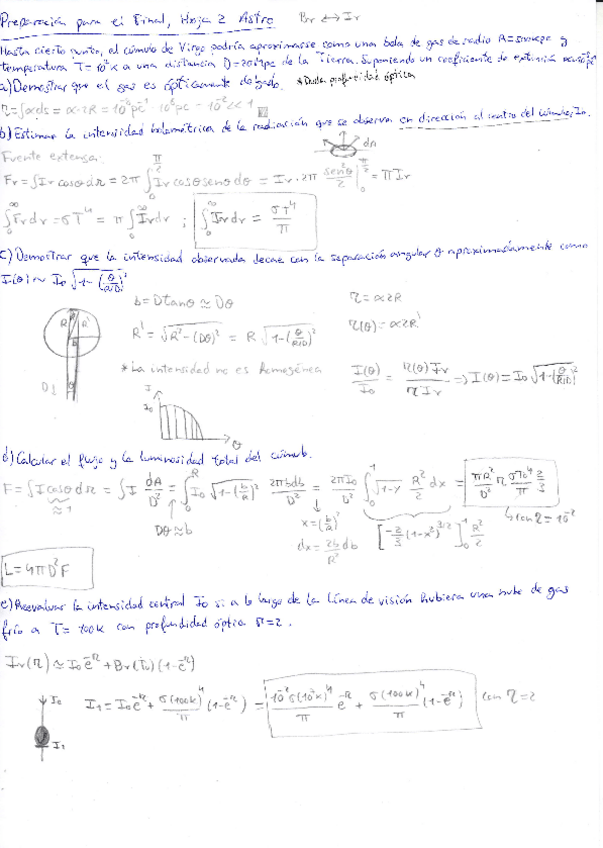 Preparación para el Final, Hoja 2 Astro Bν ↔ Iν
Hasta cierto punto, el cúmulo de Virgo podría aproximarse como una bola de gas de radio R=5 Mpc y
temperatura T=10⁴K a una distancia D=20Mpc de la Tierra. Suponiendo un coeficiente de extinción
a) Demostrar que el gas es ópticamente delgado. *Duda profundidad óptica
τ=∫αds = α·2R = 10⁻⁸pc⁻¹·10⁶pc = 10⁻²<<1
b) Estimar la intensidad bolométrica de la radiación que se observa en dirección al centro del cúmulo, I₀.
dΩ
Fuente extensa:
Fν=∫Iν cosθdΩ = 2π ∫₀^{π/2} Iν cosθ senθ dθ = Iν·2π sen²θ/2 |₀^{π/2} = πIν
∫₀^∞ Fν dν = σT⁴ = π∫₀^∞ Iν dν ; ∫₀^∞ Iν dν = σT⁴/π
c) Demostrar que la intensidad observada decae con la separación angular θ aproximadamente como
I(θ) ~ I₀ √(1-(θ/(R/D))²)
b=D tanθ ≈ Dθ
τ=α2R
R R'
R' = √(R²-(Dθ)²) = R √(1-(θ/(R/D))²)
τ(θ)=α2R'
b
*La intensidad no es homogénea
I(θ)/I₀ = τ(θ)Fν/τIν => I(θ)=I₀√(1-(θ/(R/D))²)
D
θ
I
I₀
θ
d) Calcular el flujo y la luminosidad total del cúmulo.
F=∫I cosθ dΩ = ∫I dA/D² = ∫₀^R I₀ √(1-(b/R)²) 2πbdb/D² = 2πI₀/D² ∫₀^1 √(1-x) R²/2 dx = πR²/D² τ σT₀⁴/π 2/3
≈1
Dθ≈b
x=(b/R)²
dx=2b/R² db
[-2/3(1-x²)^{3/2}]₀^1 R²/2
↳ con τ=10⁻²
L=4πD²F
e) Reevaluar la intensidad central I₀ si a lo largo de la línea de visión hubiera una nube de gas
frío a T=100K con profundidad óptica τ=2.
Iν(τ)≈I₀e^{-τ}+Bν(T₀)(1-e^{-τ})
I₀
I₁=I₀e^{-τ}+σ(100K)⁴/π (1-e^{-τ}) = 10⁻²σ(10⁴K)⁴/π e^{-τ} + σ(100K)⁴/π (1-e^{-τ}) con τ=2
I₁